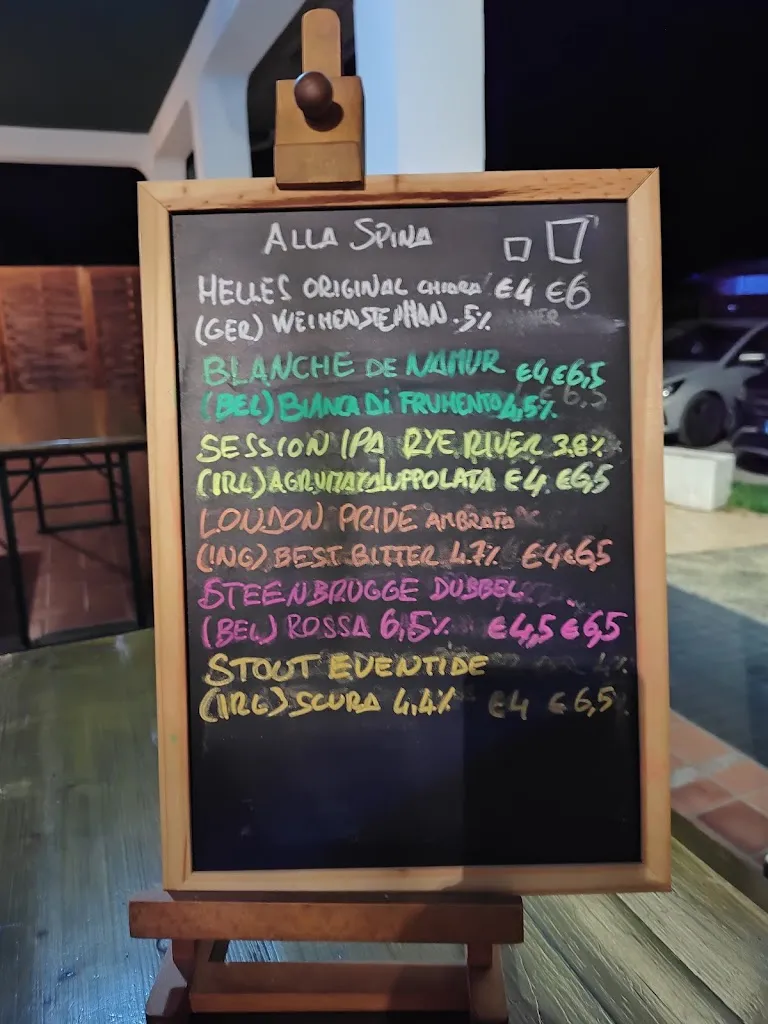 ALLA SPINA
HELLES ORIGINAL CHIARA €4 €6
(GER) WEIHENSTEPHAN. 5%
BLANCHE DE NAMUR €4 €6,5
(BEL) BIANCA DI FRUMENTO 4,5%
SESSION IPA RYE RIVER 3.8%
(IRL) AGRUMATA LUPPOLATA €4 €6,5
LONDON PRIDE AMBRATA
(ING) BEST BITTER 4.7% €4 €6,5
STEENBRUGGE DUBBEL
(BEL) ROSSA 6,5% €4,5 €6,5
STOUT EVENTIDE
(IRL) SCURA 4.4% €4 €6,5